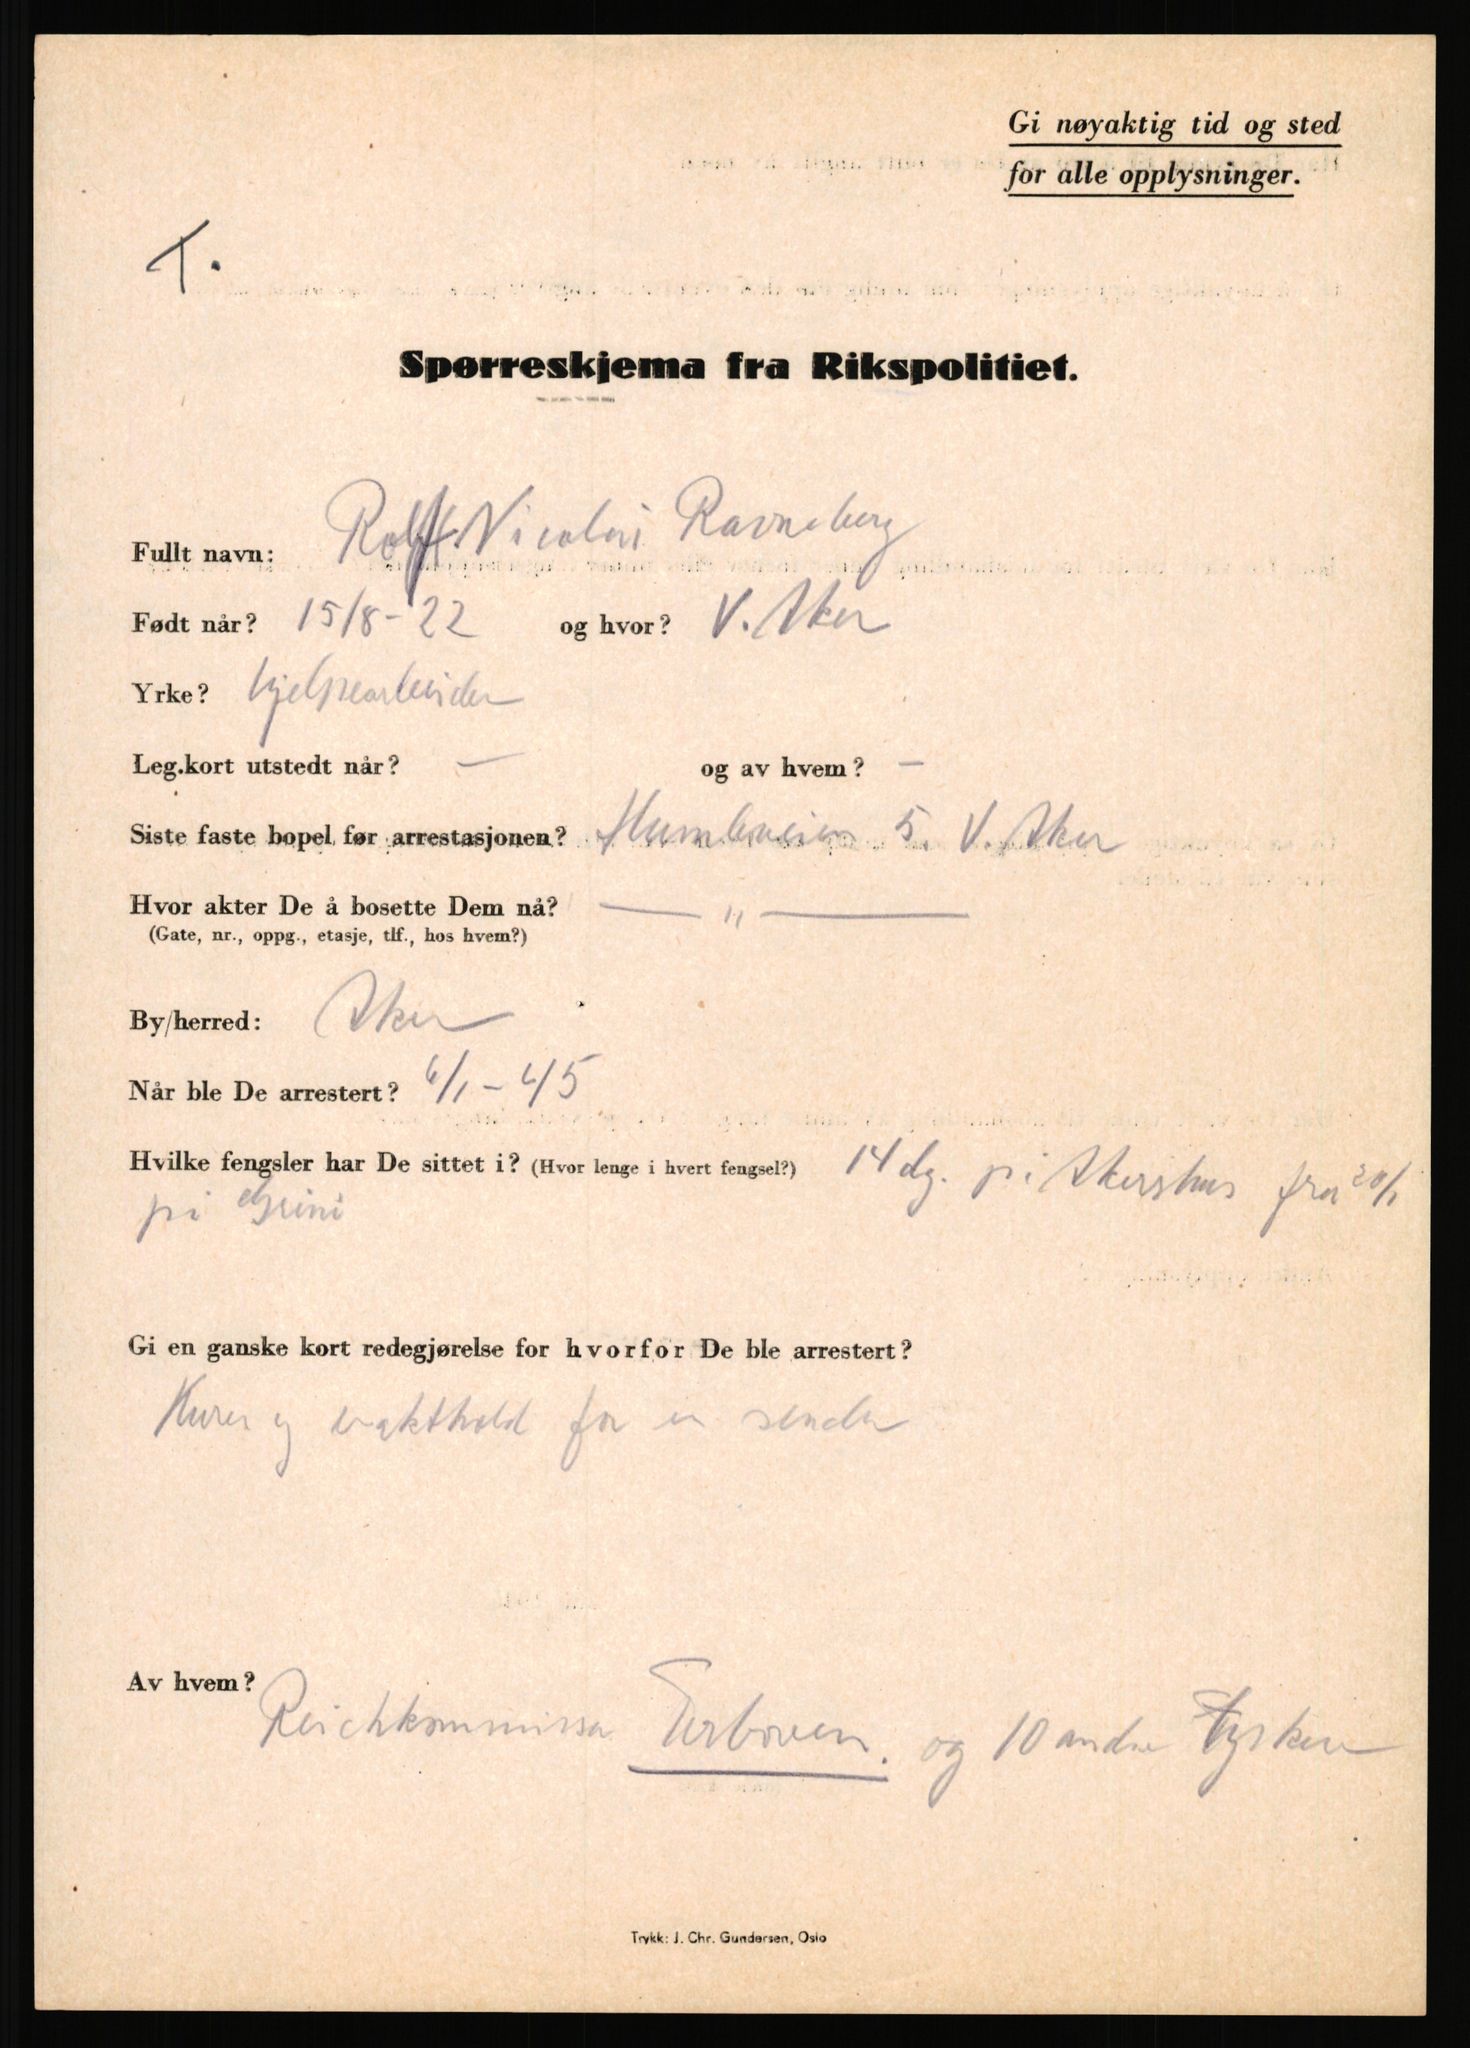 Gi nøyaktig tid og sted
for alle opplysninger.
T.
Spørreskjema fra Rikspolitiet.
Fullt navn: Rolf Nicolai Ravneberg
Født når? 15/8-22 og hvor? V. Aker
Yrke? hjelpearbeider
Leg.kort utstedt når? — og av hvem? —
Siste faste bopel før arrestasjonen? Humleveien 5. V. Aker
Hvor akter De å bosette Dem nå? — " —
(Gate, nr., oppg., etasje, tlf., hos hvem?)
By/herred: Aker
Når ble De arrestert? 6/1-45
Hvilke fengsler har De sittet i? (Hvor lenge i hvert fengsel?) 14 dg. på Akershus fra 20/1
på Grini
Gi en ganske kort redegjørelse for hvorfor De ble arrestert?
Kurer og vakthold for en sender
Av hvem? Reichkommissar Terboven. og 10 andre Tyskere
Trykk: J. Chr. Gundersen, Oslo